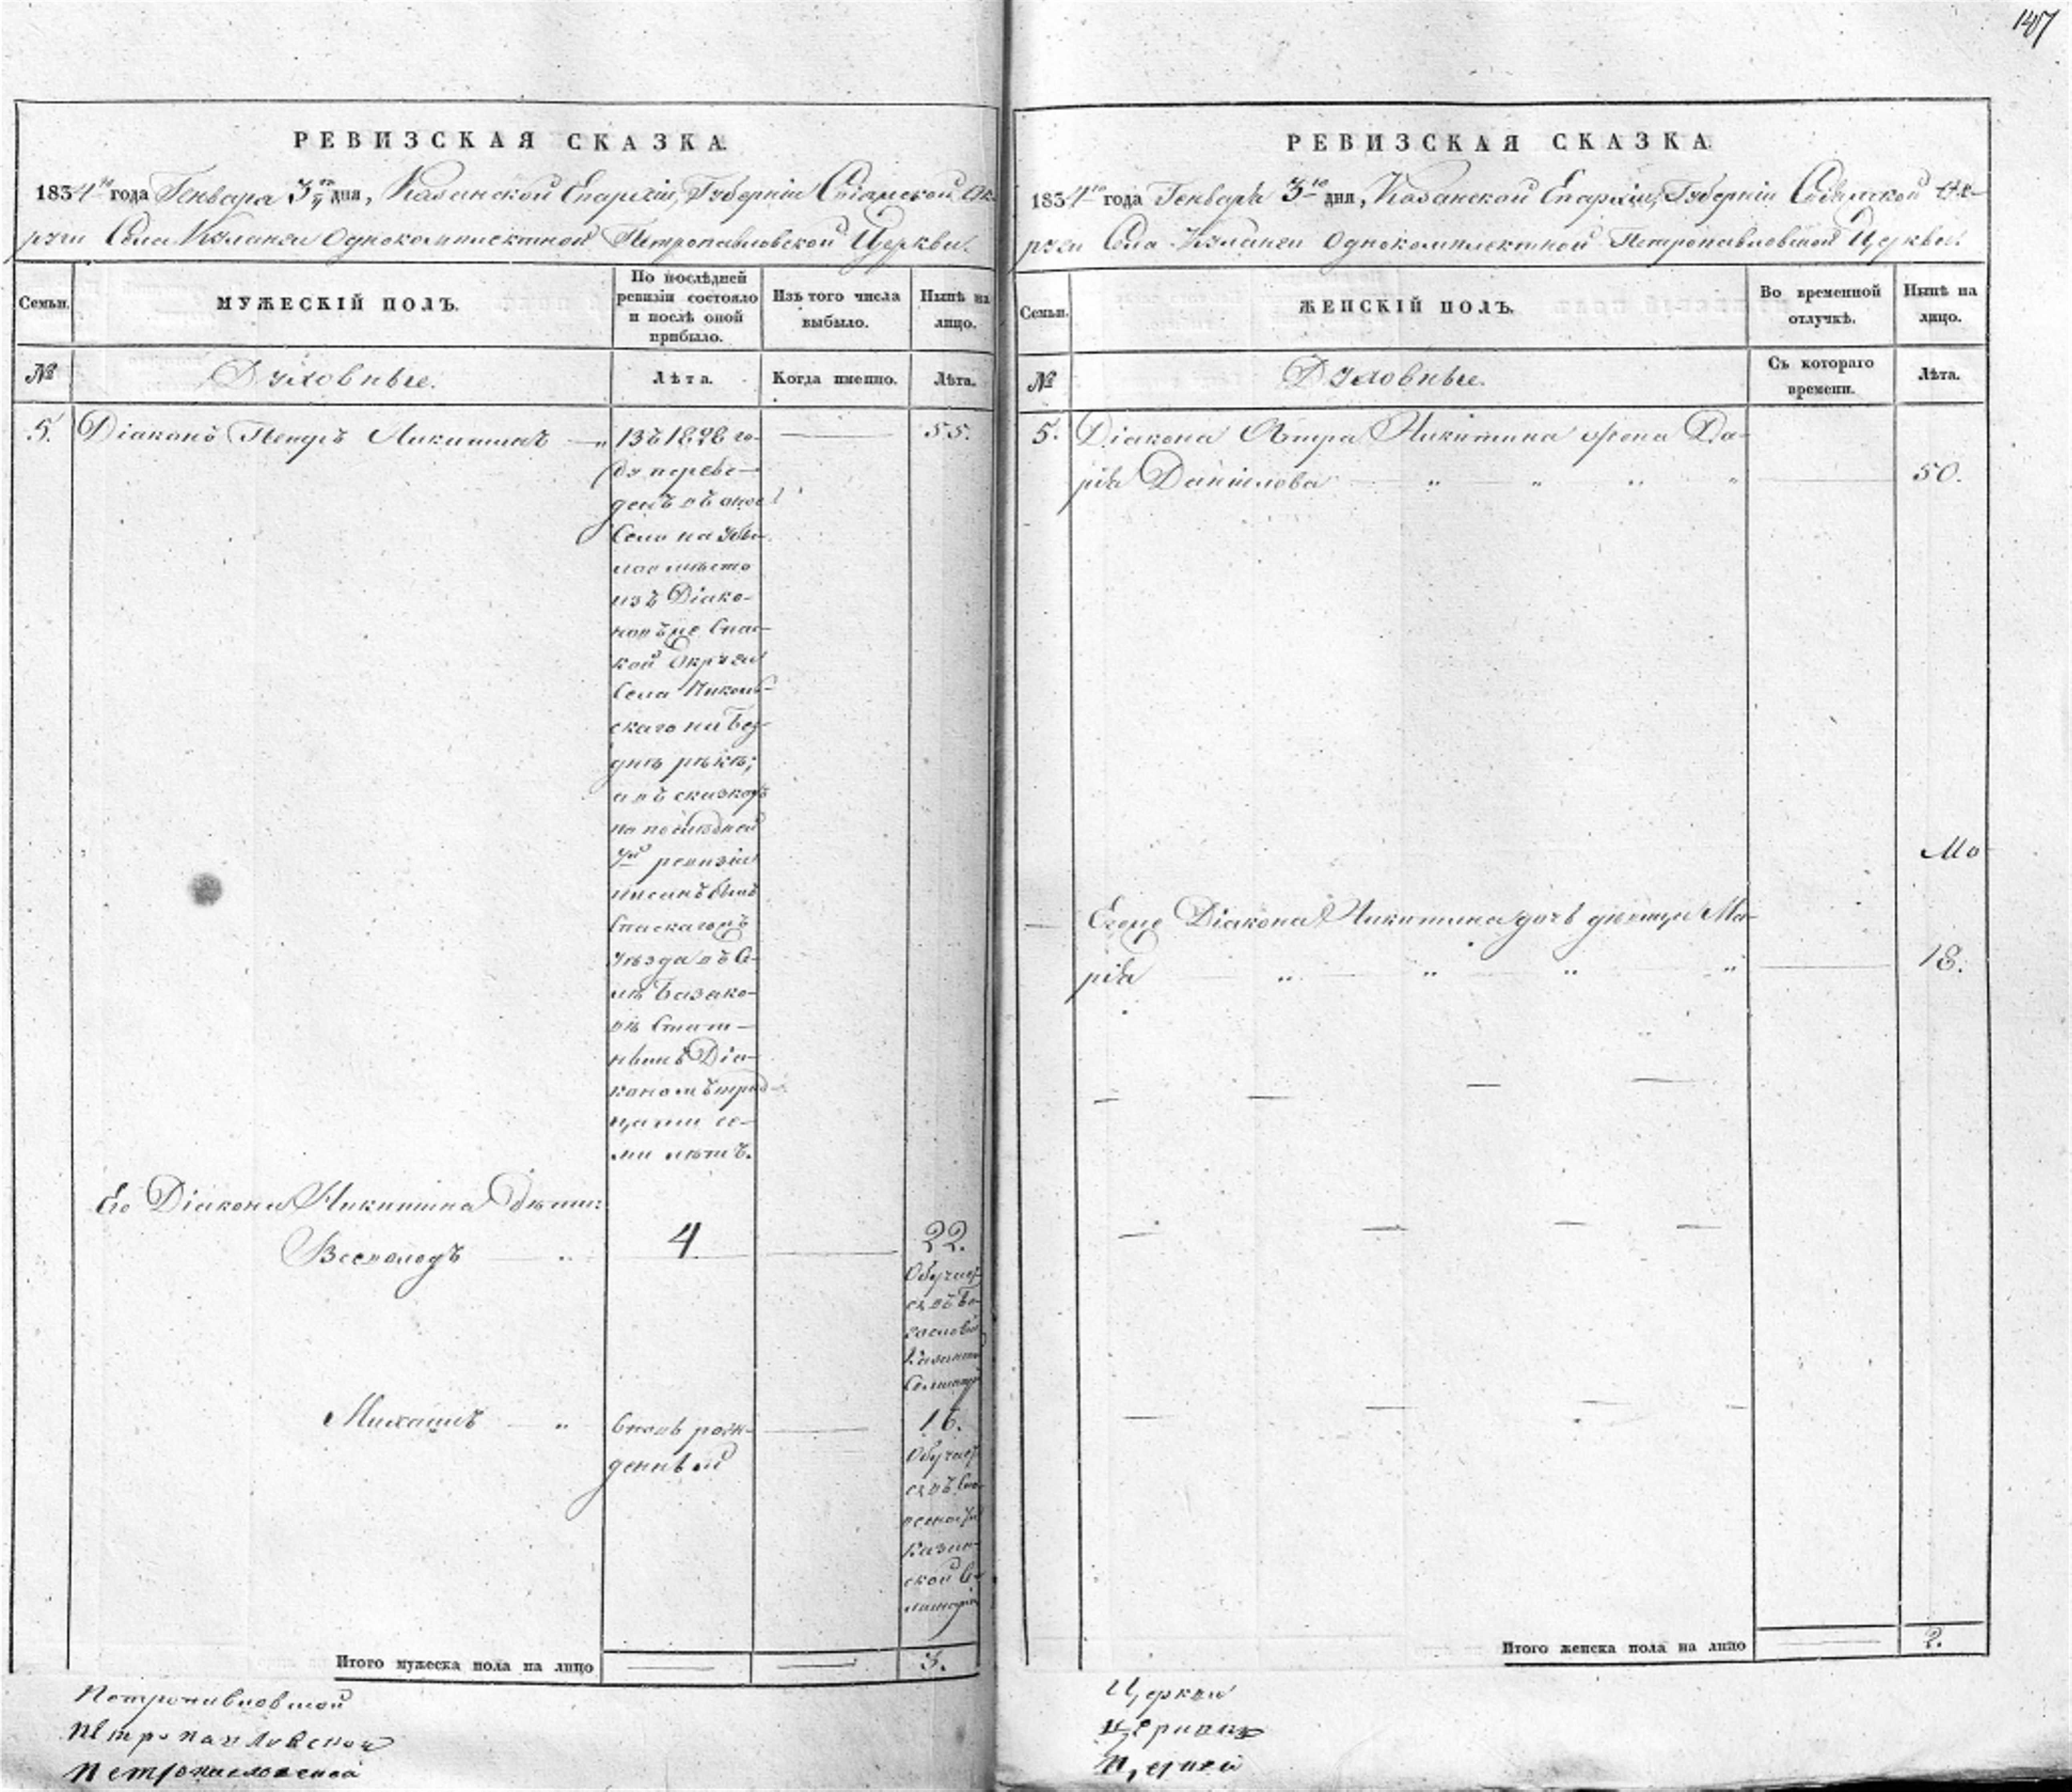 147
РЕВИЗСКАЯ СКАЗКА.
1834го года Генваря 3го дня, Казанской Епархіи, Губерніи Свіяжской Ок-
руги Села Куланги Однокомплектной Петропавловской Церкви.
Семьи.
МУЖЕСКІЙ ПОЛЪ.
По послѣдней
ревизіи состояло
и послѣ оной
прибыло.
Изъ того числа
выбыло.
Нынѣ на
лицо.
№
Духовные.
Лѣта.
Когда именно.
Лѣта.
5.
Діаконъ Петръ Никитинъ
55.
Въ 1828 го-
ду переве-
денъ въ оное
Село на убы-
лое мѣсто
изъ Діако-
новъ же Спас-
кой Округи
Села Николь-
скаго на Без-
днѣ рѣкѣ;
а въ сказкахъ
по последней
7й ревизіи
писанъ былъ
Спаскагожъ
Уѣзда въ Се-
лѣ Базако-
вѣ Штат-
нымъ Діа-
кономъ трид-
цати се-
ми лѣтъ.
Его Діакона Никитина дѣти:
Всеволодъ
4
22.
Обучает-
ся въ Бо-
гословіи
Казанской
Семинаріи
Михаилъ
Вновь рож-
денный
16.
Обучает-
ся въ
Казан-
ской Се-
минаріи
Итого мужеска пола на лицо
3.
Петропавловской
Петропавловской
Петропавловской
РЕВИЗСКАЯ СКАЗКА.
1834го года Генваря 3го дня, Казанской Епархіи, Губерніи Свіяжской Ок-
руги Села Куланги Однокомплектной Петропавловской Церкви.
Семьи.
ЖЕНСКІЙ ПОЛЪ.
Во временной
отлучкѣ.
Нынѣ на
лицо.
№
Духовные.
Съ котораго
времени.
Лѣта.
5.
Діакона Петра Никитина жена Да-
рья Данилова
50.
Егоже Діакона Никитина дочь девица Ма-
рія
18.
Итого женска пола на лицо
2.
Церкви
Церкви
Церкви